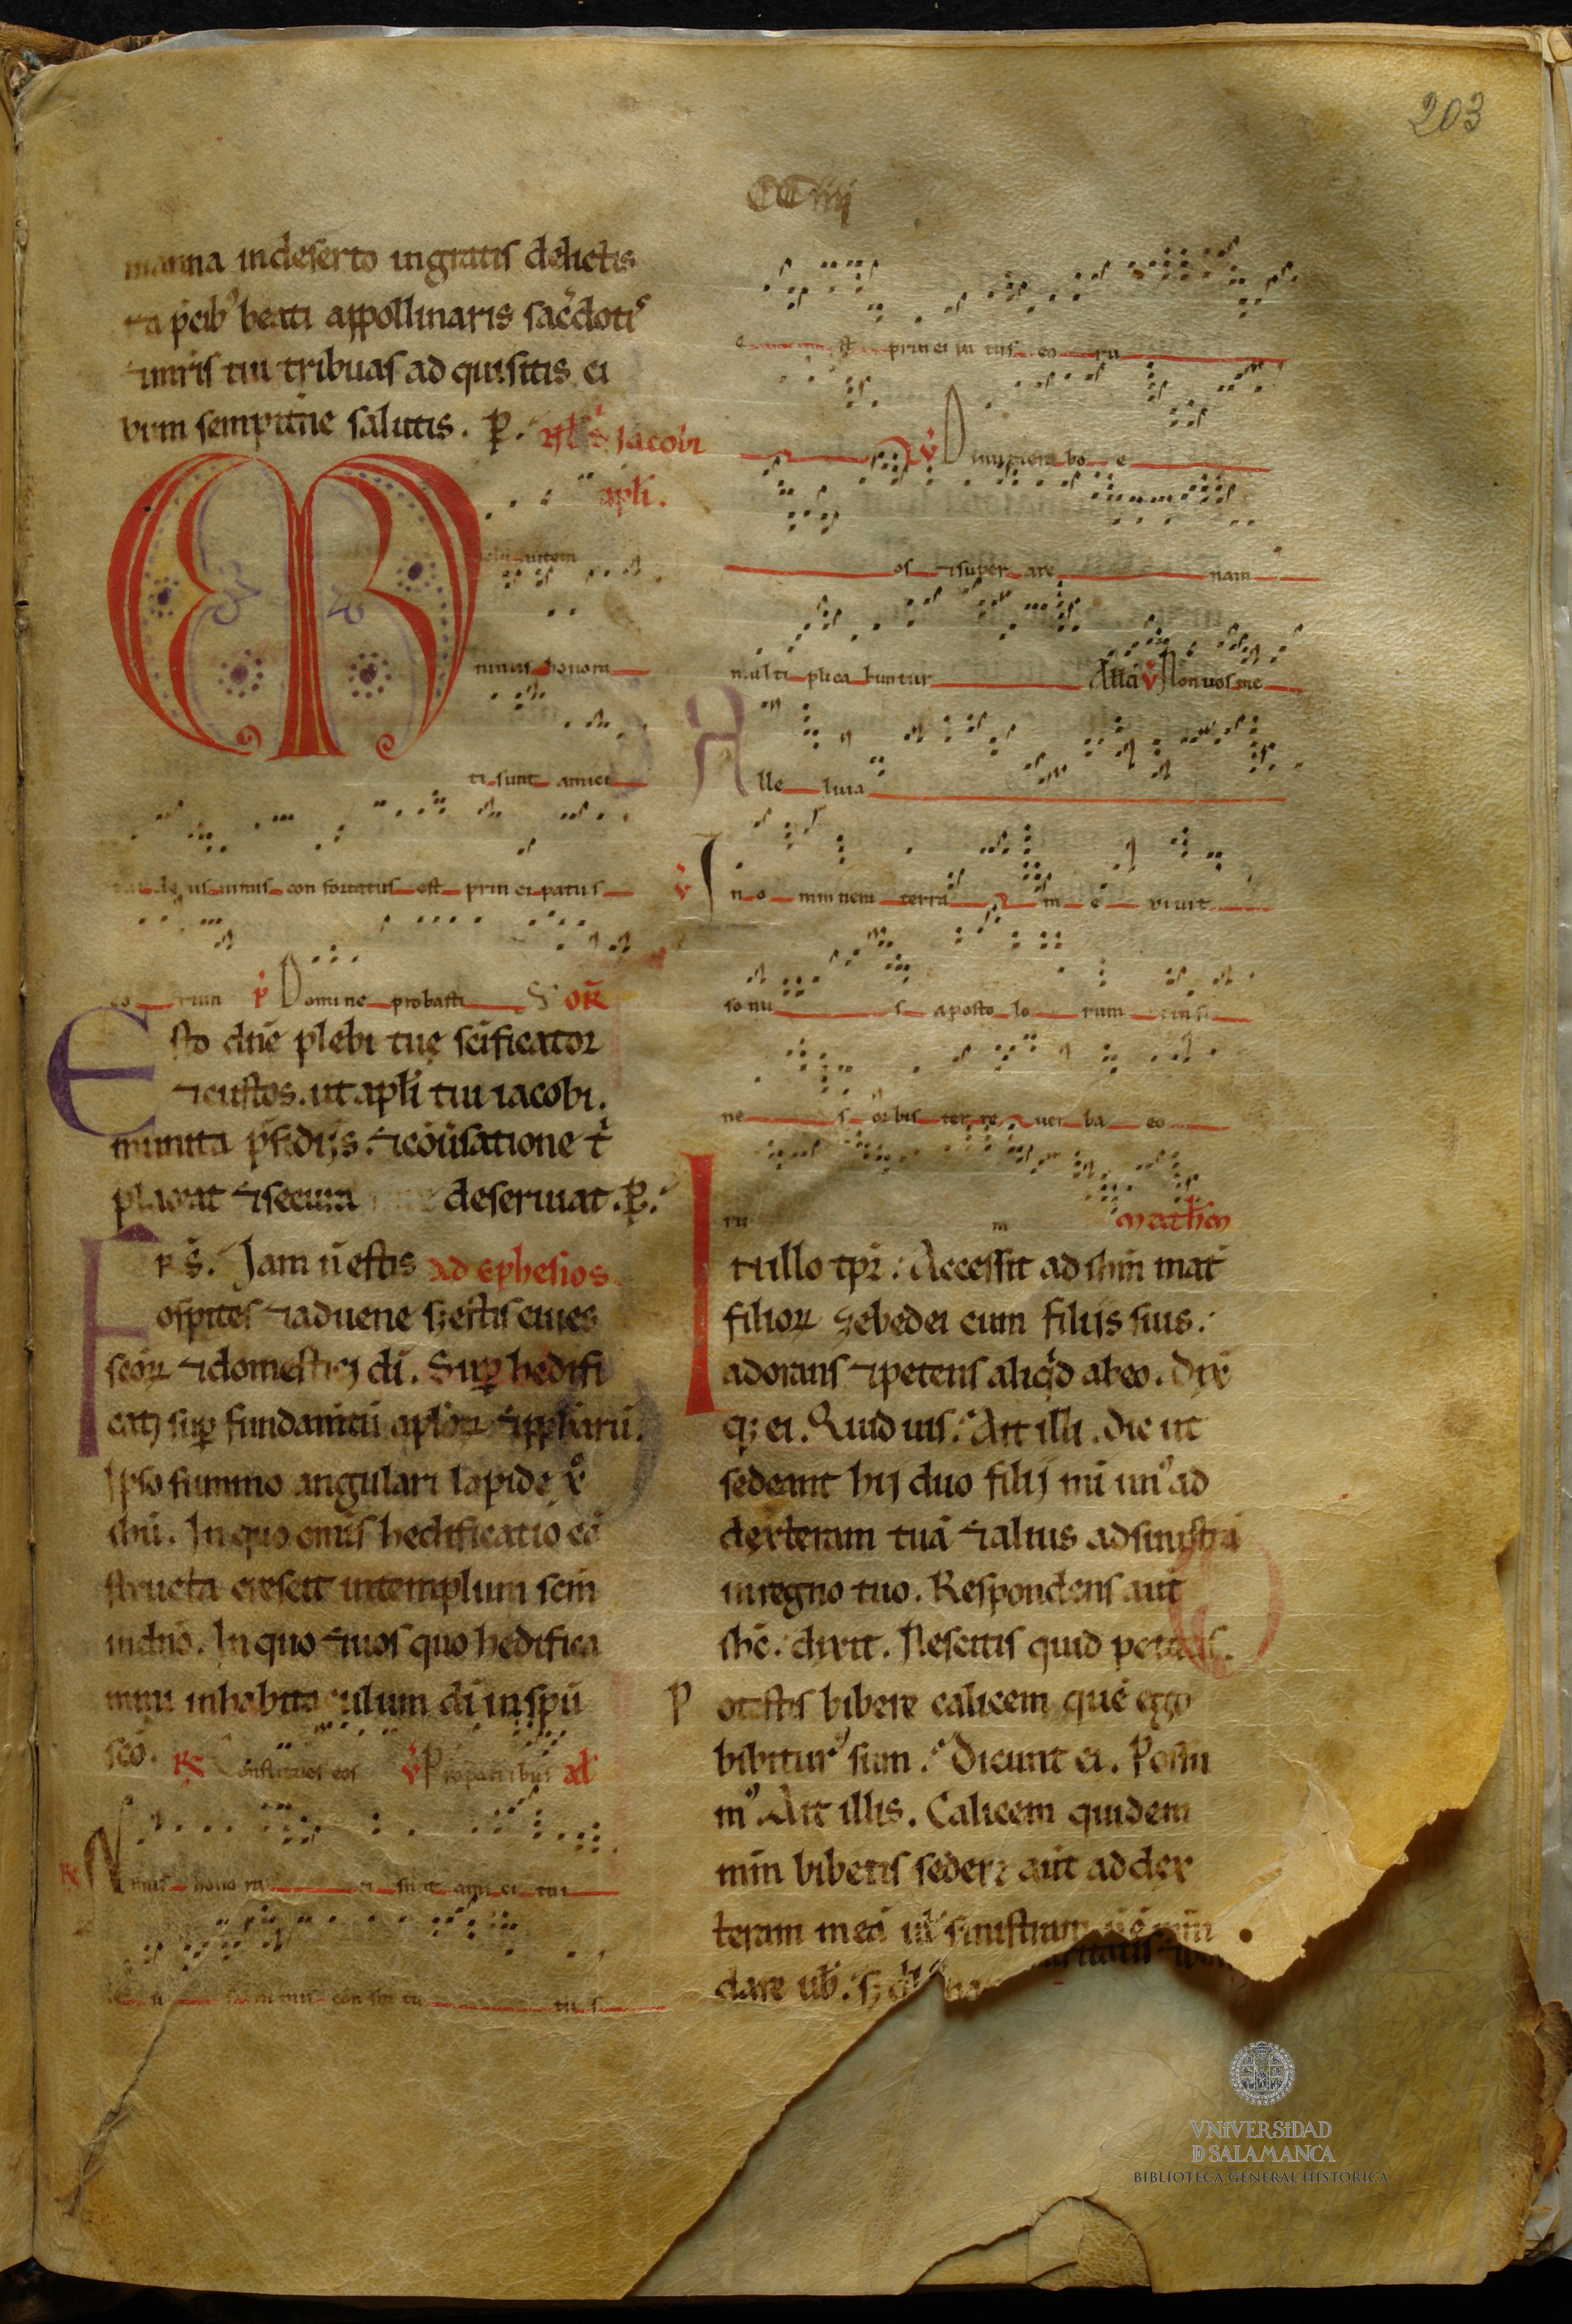 203
CCiiij
manna indeserto ingratis delictis
ta p̄cib᷒ beati appollinaris sac̄doti᷒
⁊mr̄is tui tribuas ad quisitis ci
bum sempit̄ne salutis. P.
S. Jacobi
apl̄i.
M
ichi autem
nimis honora
ti sunt amici
tui deus nimis con fortatus est prin ci patus
eo rum P Domine probasti S. OR̄
Esto dn̄e plebi tuę sc̄ificator
⁊custos. ut apl̄i tui iacobi.
munita p̄sidijs. ⁊cōūsatione t̄
placeat ⁊secura deseruiat. P.
Frs̄. Jam n̄ estis Ad Ephesios
ospites ⁊aduene sꝫ estis ciues
sc̄oꝝ ⁊domestici di. Suꝑ hedifi
catj suꝑ fundam̄tū apl̄oꝝ ⁊ppharū.
Ipso summo angulari lapide xp̄o
ihū. In quo om̄is hedificatio cō
structa crescit intemplum scm̄
indn̄o. In quo ⁊uos quo hedifica
mini inhabitaculum di in spū
scō. R Constitues eos V Pro patribus al
R Nimis honora ti sunt ami ci tui
de us nimis con for ta tu s
e st prin ci pa tus eo ru
V Dinumerabo e
os ⁊super are nam
multi plica buntur All̄a V Non uos me
Alle luia
V In o mnem terrā e xi uit
sonu s aposto lo rum ⁊in fi
ne s orbis ter re uer ba eo
ru m Math̄m
In illo tp̄r. Accessit ad ihm̄ mat̄
filioꝝ zebedei cum filijs suis.
adorans ⁊petens aliqd̄ abeo. Dix̄
qꝫ ei. Quid uis. Ait illi. Dic ut
sedeant hij duo filij mi un᷒ ad
dexteram tuā ⁊alius adsinistrā
inregno tuo. Respondens aut̄
ihc̄. dixit. Nescitis quid petatis.
Potestis bibere calicem quē ego
bibitur᷒ sum. Dicunt ei. Possu
m᷒. Ait illis. Calicem quidem
meum bibetis sedere aut̄ addex
teram meā ul̄ sinistram n̄ ē m̄m
dare uob̄. sꝫ
VNiVERSiDAD
D SALAMANCA
BIBLIOTECA GENERAL HISTÓRICA